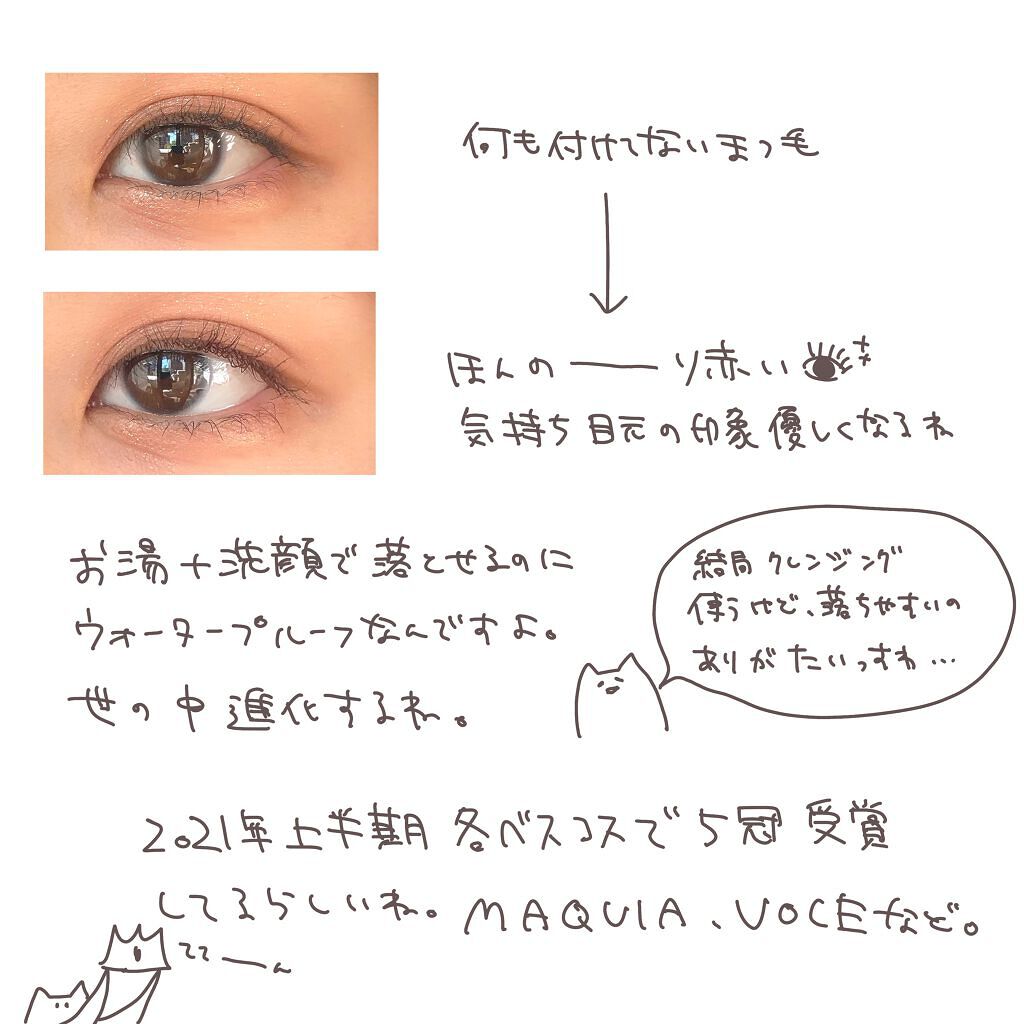 何も付けてないまつ毛
ほんのーり赤い
気持ち目元の印象優しくなるね
お湯+洗顔で落とせるのに
ウォータープルーフなんですよ。
世の中進化するね。
結局クレンジング
使うけど、落ちやすいの
ありがたいっすわ…
2021年上半期 各ベスコスで5冠 受賞
してるらしいね。MAQUIA、VOCEなど。
ててーん